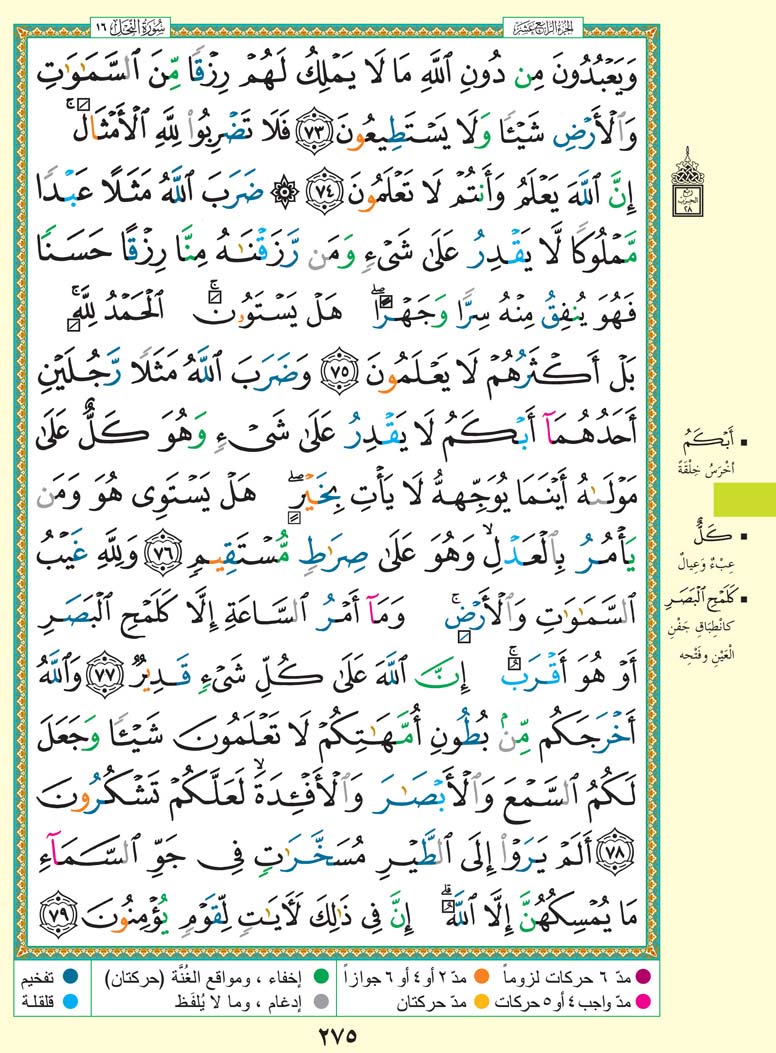 الجزء الرابع عشر
سُورَةُ النَّحْلِ ١٦
وَيَعْبُدُونَ مِن دُونِ ٱللَّهِ مَا لَا يَمْلِكُ لَهُمْ رِزْقًا مِّنَ ٱلسَّمَٰوَٰتِ
وَٱلْأَرْضِ شَيْـًٔا وَلَا يَسْتَطِيعُونَ ﴿٧٣﴾ فَلَا تَضْرِبُوا۟ لِلَّهِ ٱلْأَمْثَالَ ۚ
إِنَّ ٱللَّهَ يَعْلَمُ وَأَنتُمْ لَا تَعْلَمُونَ ﴿٧٤﴾ ۞ ضَرَبَ ٱللَّهُ مَثَلًا عَبْدًا
مَّمْلُوكًا لَّا يَقْدِرُ عَلَىٰ شَىْءٍ وَمَن رَّزَقْنَٰهُ مِنَّا رِزْقًا حَسَنًا
فَهُوَ يُنفِقُ مِنْهُ سِرًّا وَجَهْرًا ۖ هَلْ يَسْتَوُۥنَ ۚ ٱلْحَمْدُ لِلَّهِ ۚ
بَلْ أَكْثَرُهُمْ لَا يَعْلَمُونَ ﴿٧٥﴾ وَضَرَبَ ٱللَّهُ مَثَلًا رَّجُلَيْنِ
أَحَدُهُمَآ أَبْكَمُ لَا يَقْدِرُ عَلَىٰ شَىْءٍ وَهُوَ كَلٌّ عَلَىٰ
مَوْلَىٰهُ أَيْنَمَا يُوَجِّههُّ لَا يَأْتِ بِخَيْرٍ ۖ هَلْ يَسْتَوِى هُوَ وَمَن
يَأْمُرُ بِٱلْعَدْلِ ۙ وَهُوَ عَلَىٰ صِرَٰطٍ مُّسْتَقِيمٍ ﴿٧٦﴾ وَلِلَّهِ غَيْبُ
ٱلسَّمَٰوَٰتِ وَٱلْأَرْضِ ۚ وَمَآ أَمْرُ ٱلسَّاعَةِ إِلَّا كَلَمْحِ ٱلْبَصَرِ
أَوْ هُوَ أَقْرَبُ ۚ إِنَّ ٱللَّهَ عَلَىٰ كُلِّ شَىْءٍ قَدِيرٌ ﴿٧٧﴾ وَٱللَّهُ
أَخْرَجَكُم مِّنۢ بُطُونِ أُمَّهَٰتِكُمْ لَا تَعْلَمُونَ شَيْـًٔا وَجَعَلَ
لَكُمُ ٱلسَّمْعَ وَٱلْأَبْصَٰرَ وَٱلْأَفْـِٔدَةَ ۙ لَعَلَّكُمْ تَشْكُرُونَ
﴿٧٨﴾ أَلَمْ يَرَوْا۟ إِلَى ٱلطَّيْرِ مُسَخَّرَٰتٍ فِى جَوِّ ٱلسَّمَآءِ
مَا يُمْسِكُهُنَّ إِلَّا ٱللَّهُ ۗ إِنَّ فِى ذَٰلِكَ لَءَايَٰتٍ لِّقَوْمٍ يُؤْمِنُونَ ﴿٧٩﴾
ربع
الحزب
٢٨
▪ أَبْكَمُ
أخْرَسُ خِلْقَةً
▪ كَلٌّ
عِبْءٌ وَعِيالٌ
▪ كَلَمْحِ ٱلْبَصَرِ
كانْطِبَاقِ جَفْنِ
الْعَيْنِ وفَتْحِه
مدّ ٦ حركات لزوماً
مدّ ٢ أو ٤ أو ٦ جوازاً
إخفاء ، ومواقع الغُنَّة (حركتان)
تفخيم
مدّ واجب ٤ أو ٥ حركات
مدّ حركتان
إدغام ، وما لا يُلفَظ
قلقلة
٢٧٥